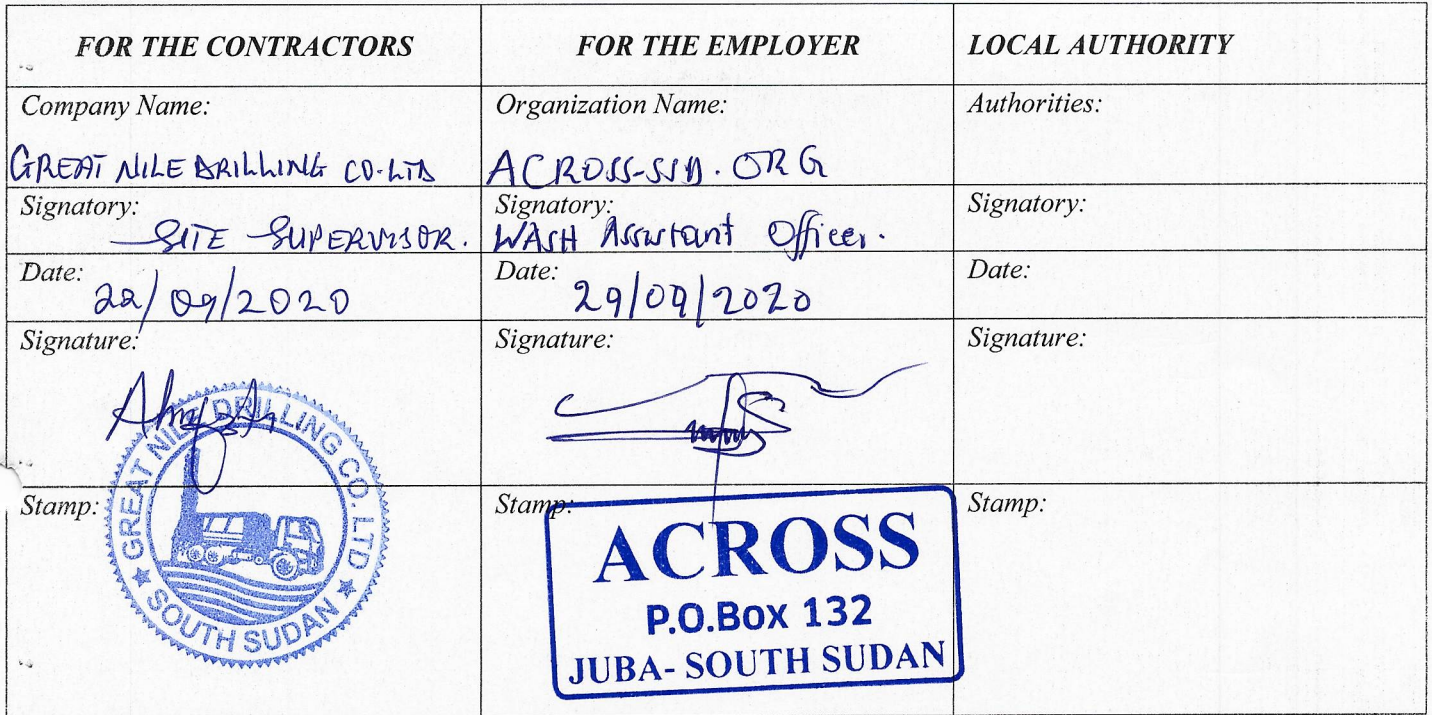 FOR THE CONTRACTORS
FOR THE EMPLOYER
LOCAL AUTHORITY
Company Name:
GREAT NILE DRILLING CO.LTD
Organization Name:
ACROSS-SSD.ORG
Authorities:
Signatory:
SITE SUPERVISOR.
Signatory:
WASH Assistant Officer.
Signatory:
Date:
22/09/2020
Date:
29/09/2020
Date:
Signature:
Signature:
Signature:
Stamp:
GREAT NILE DRILLING CO. LTD
SOUTH SUDAN
Stamp:
ACROSS
P.O.Box 132
JUBA- SOUTH SUDAN
Stamp: